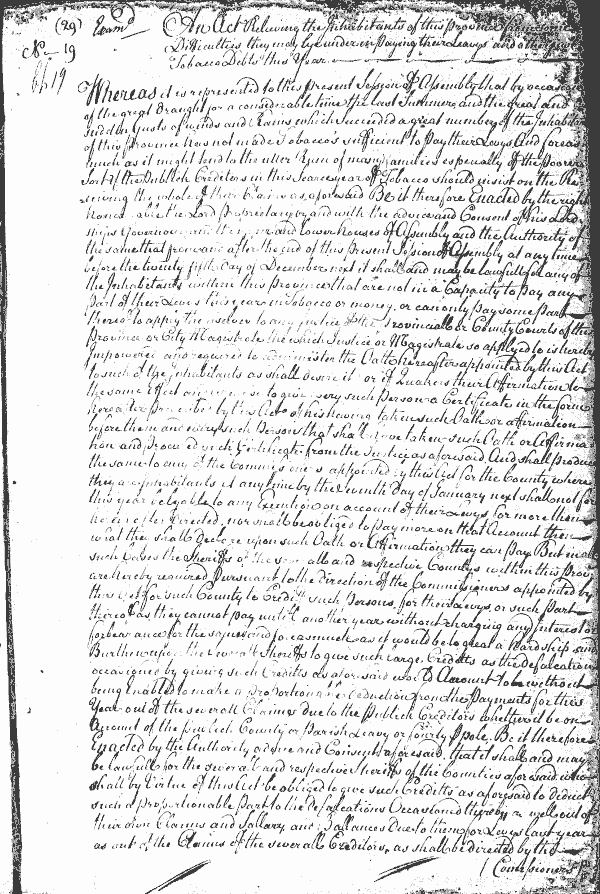 (29) Exam.d An Act Relieving the Inhabitants of this Province from some
No 19 Difficulties they may lye under in Paying their Levys and other
6619 Tobacco Debts this Year
Whereas it is represented to this present Session of Assembly that by occasion
of the great draught for a considerable time the last Summer and the great and
sudden Gusts of winds and Rains which Succeeded a great number of the Inhabitants
of this Province has not made Tobacco's sufficient to Pay their Levys And foreas
much as it might tend to the utter Ruin of many families especially of the poorer
sort if the Publick Creditors in this Scarce year of Tobacco should insist on the Re
ceiving the whole of their Claims as aforesaid Be it therefore Enacted by the right
honourable the Lord Proprietary by and with the advice and Consent of his Lord
ships Governour and the upper and lower houses of Assembly and the Authority of
the same that from and after the end of this Present Session of Assembly at any time
before the twenty fifth day of December next it shall and may be lawfull for any of
the Inhabitants within this Province that are not in a Capacity to pay any
part of their Levys this year in Tobacco or money, or can only pay some Part
thereof to apply themselves to any justice of the Provinciall or County Courts of this
Province or City Magistrate the which Justice or Magistrate so applyed to is hereby
Impowered and required to administer the Oath hereafter appointed by this Act
to such of the Inhabitants as shall desire it or if Quakers their Affirmation to
the same Effect and to give every such Person a Certificate in the form
hereafter prescribed by this Act of his having taken such Oath or affirmation
before them and every such Person that shall have taken such Oath or Affirma
tion and procured such Certificate from the Justice as aforesaid And shall produce
the same to any of the Commissioners appointed by this Act for the County where
they are Inhabitants at any time by the tenth Day of January next shall not for
this year be lyable to any Execution on account of their Levys for more then
hereafter Directed, nor shall be obliged to pay more on that Account then
what they shall declare upon such Oath or Affirmation they can Pay But in all
such Cases the Sheriffs of the severall and respective Countys within this Prov
are hereby required Pursuant to the direction of the Commissioners appointed by
this Act for such County to Credit such Persons for their Levys, or such part
thereof as they cannot pay untill another year without charging any Interest or
forbearance for the same and for as much as it would be to great a hardship and
Burthen upon the severall Sheriffs to give such large Credits as the defalcation
occasioned by giving such Credits as aforesaid would Amount to be without
being Enabled to make a proportionable deduction from the Payments for this
Year out of the severall Claims due to the Publick Creditors whether it be on
Account of the Publick County or Parish Leavy or fourty P pole, Be it therefore
Enacted by the Authority advice and Consent aforesaid, that it shall and may
be lawfull for the severall and respective Sheriffs of the Counties aforesaid who
shall by Virtue of this Act be obliged to give such Credits as aforesaid to deduct
such a proportionable Part to the defalcations Occasioned thereby as well out of
their own Claims and Sallary and Ballances Due to them for Levys last year
as out of the Claims of the severall Creditors, as shall be directed by the
Comissioners